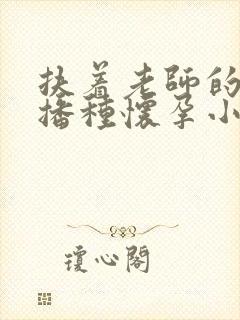 扶着老師的
播種懷孕小
瓊心閣